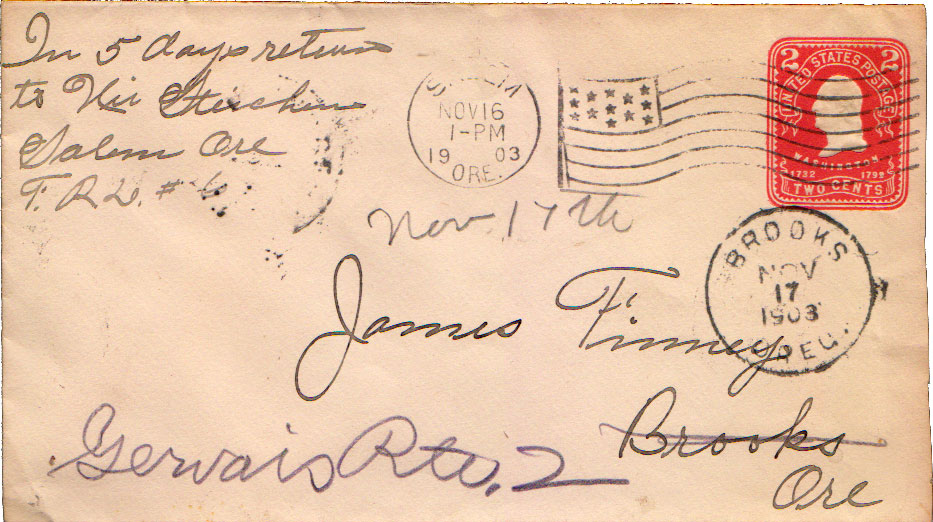 In 5 days return
to
Salem Ore
F. R. D. # 6
SALEM
NOV 16
1-PM
1903
ORE.
2 UNITED STATES POSTAGE 2
WASHINGTON
1732 1799
TWO CENTS
Nov. 17th
BROOKS
NOV
17
1903
OREG.
James Finney
Brooks
Ore
Gervais Rte. 2